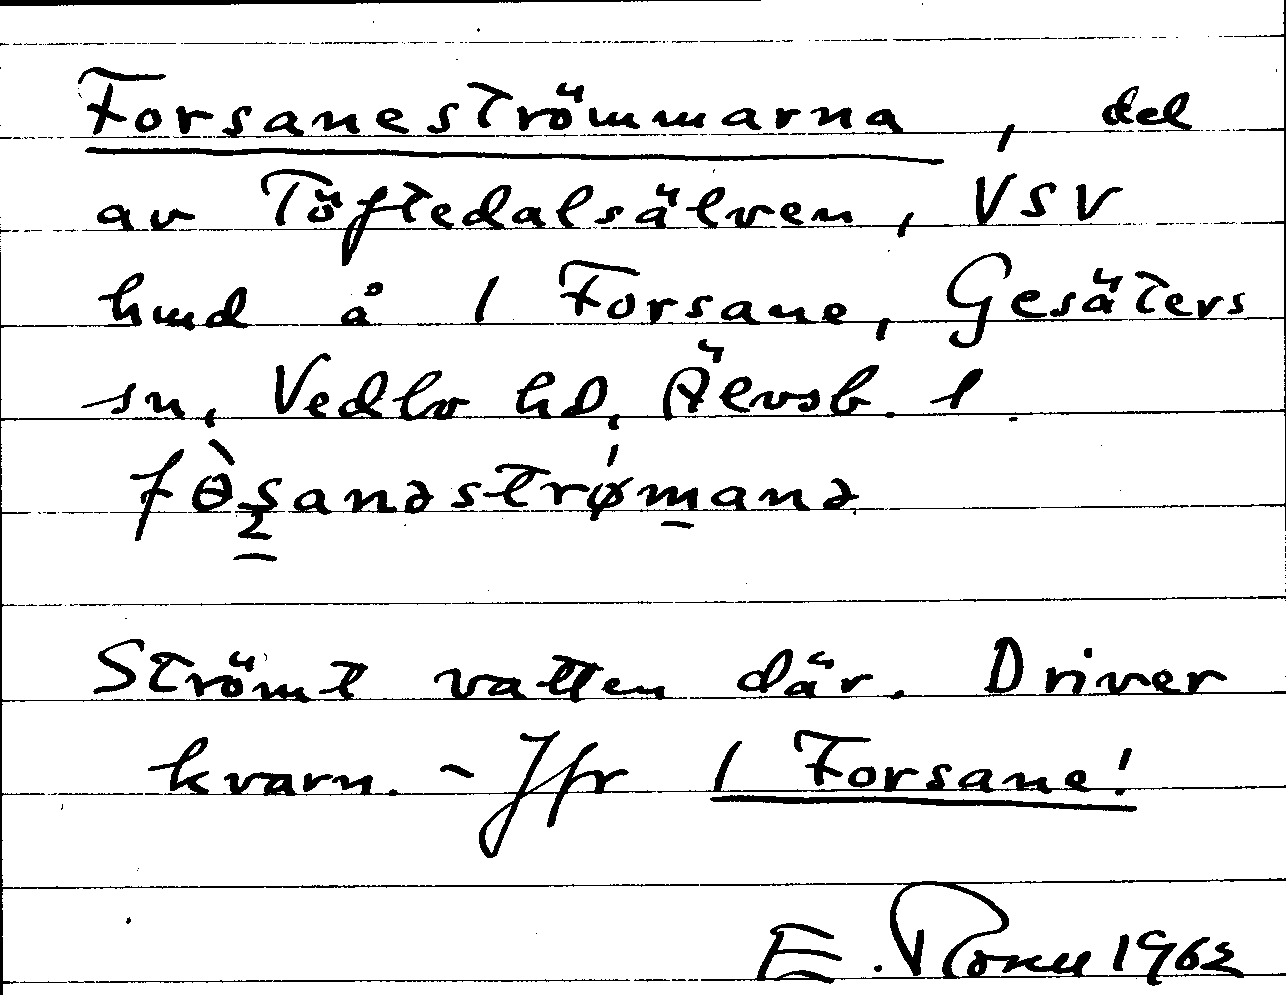 Forsaneströmmarna, del
av Töftedalsälven, VSV
hmd å 1 Forsane, Gesäters
sn, Vedbo hd, Älvsb. l.
fɵ̀s̱anəstrǿm̱anə
Strömt vatten där. Driver
kvarn. - Jfr 1 Forsane!
E. 1962